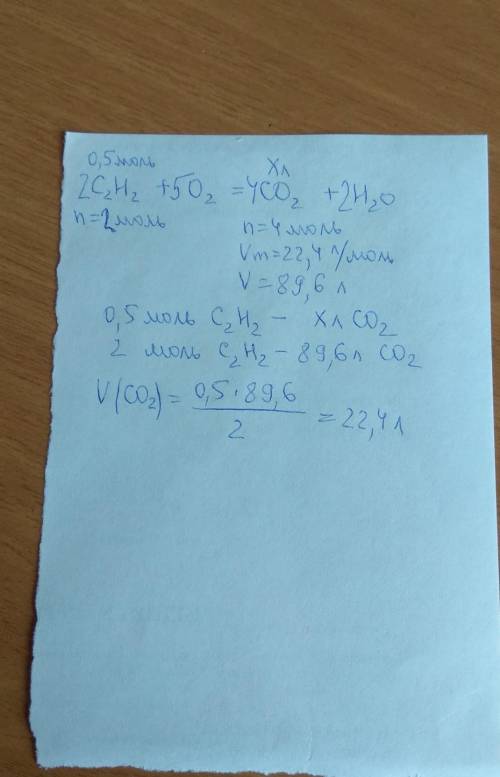 0,5 моль Xл
2C₂H₂ + 5O₂ = 4CO₂ + 2H₂O
n=2моль n=4моль
Vm=22,4 л/моль
V=89,6 л
0,5 моль C₂H₂ – Xл CO₂
2 моль C₂H₂ – 89,6л CO₂
V(CO₂) = 0,5·89,6 / 2 = 22,4л